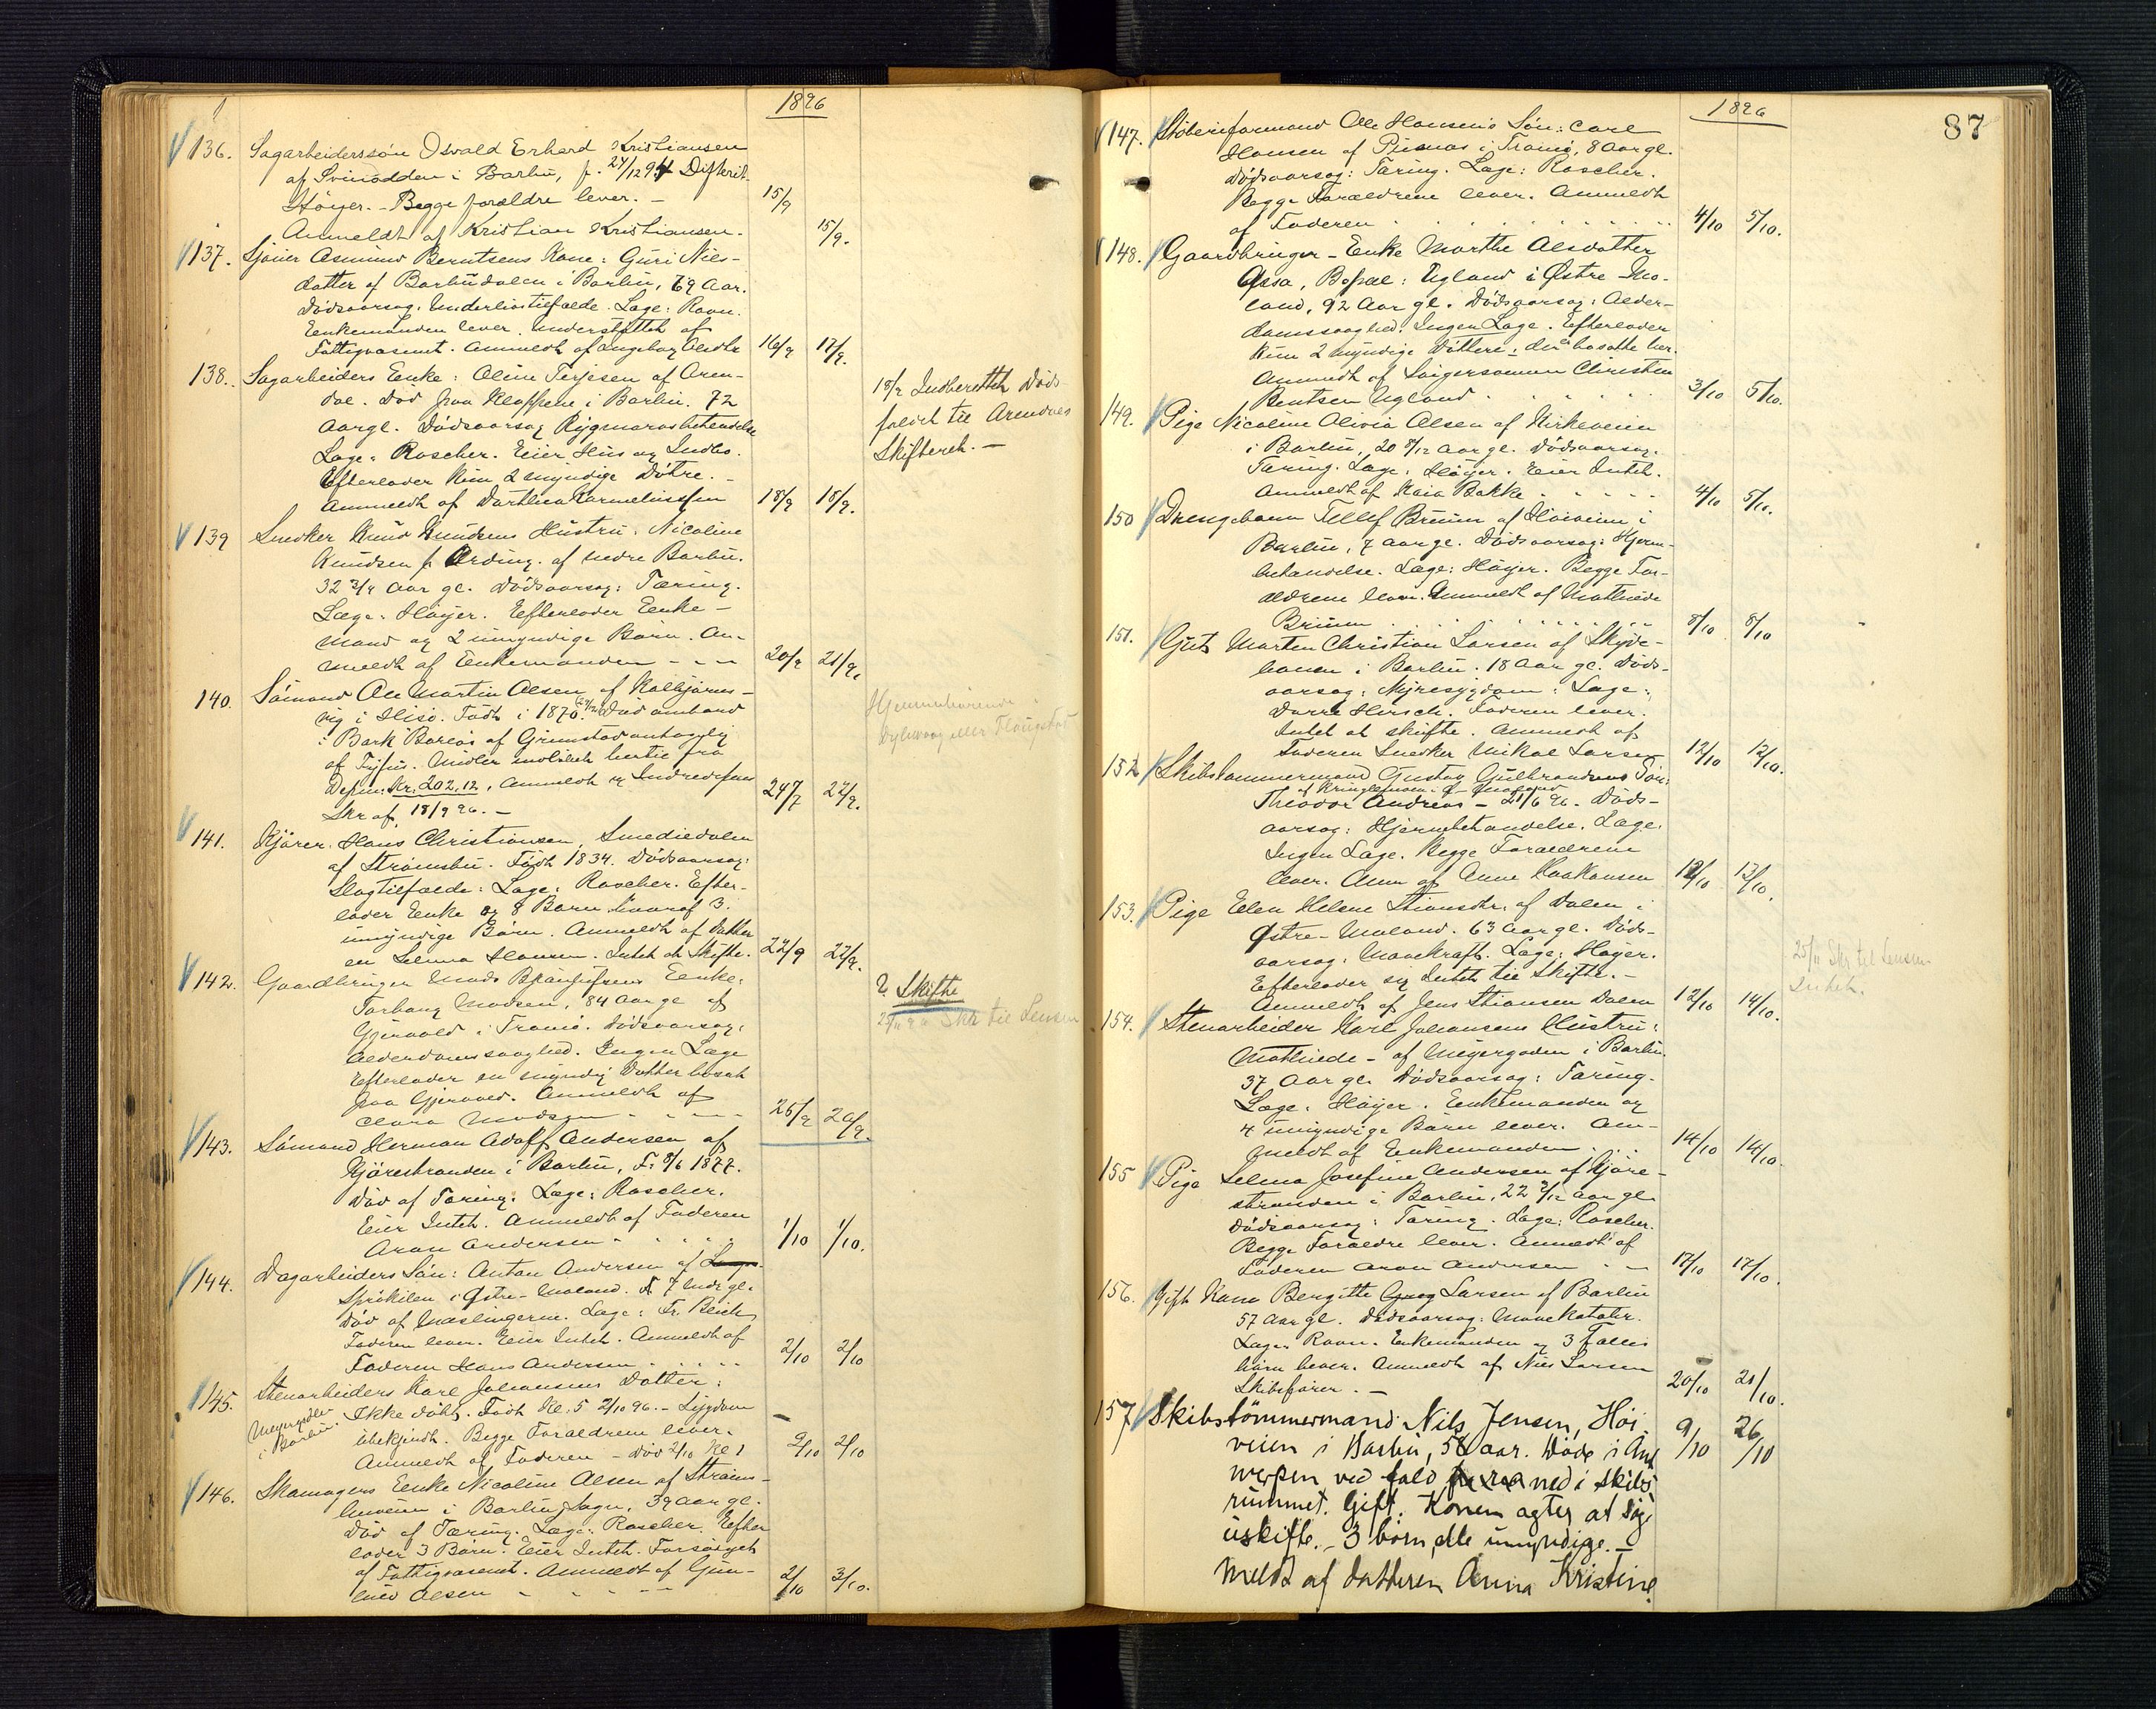 1896
136. Sagarbeiderssön Osvald Erhard Kristiansen
af Svinodden i Barbu, f. 27/12 94 Difterit.
Höyer. - Begge forældre lever. - 15/9
Anmeldt af Kristian Kristiansen. 15/9.
137. Sjöuer Asmund Berntsens Kone: Guri Niels-
datter af Barbudalen i Barbu, 69 Aar.
Dödsaarsag: Underlivstilfælde. Læge: Ravn.
Enkemanden lever. Understöttet af
Fattigvæsenet. Anmeldt af Ingeborg 16/9 17/9.
138. Sagarbeiders Enke: Oline Terjesen af Aren-
dal. Död paa Kloppene i Barbu. 72
Aar gl. Dödsaarsag Rygmarvsbetendelse
Læge: Roscher. Eier Hus og Indbo.
Efterlader kun 2 myndige Dötre. -
Anmeldt af Dorthea Karneliussen 18/9 18/9.
18/9 Indberettet Döds-
faldet til Arendals
Skifteret. -
139 Snedker Knud Knudsens Hustru: Nicoline
Knudsen f. Erding. af nedre Barbu.
32 3/4 Aar gl. Dödsaarsag: Tæring.
Læge: Höyer. Efterlader Enke-
mand og 2 umyndige Börn. An-
meldt af Enkemanden - - - 20/9 21/9.
140. Sömand Ole Martin Olsen af Kolbjörns-
vig i Hisö. Födt i 1870. Död ombord
i Bark Borlös af Grimstad antagelig
af Tyfus. Midler indbetalt hertil fra
Depm: Kr. 202,12, Anmeldt og 24/7 22/9.
Skr af 18/9 96. -
Hjemmehörende
Dybvaag eller Flangstad
141. Kjörer Hans Christiansen, Smediedalen
af Strömsbu. Födt 1834. Dödsaarsag:
Slagtilfælde: Læge: Roscher. Efter-
lader Enke og 8 Barn hvoraf 3
umyndige Börn. Anmeldt af Datter
en Selma Hansen. Intet at Skifte. 22/9 22/9.
142. Gaardbruger Mads Enke:
Torborg Madsen, 84 Aar gl af
Gjervold i Tromö. Dödsaarsag:
Alderdomssvaghed. Ingen Læge
Efterlader en myndig Datter bosat
paa Gjervold. Anmeldt af
Clara Madsen - - - - 25/9 26/9.
? Skifte
25/11 96 Skr til Lensm
143. Sömand Herman Adolf Andersen af
Kjörestranden i Barbu, F. 8/6 1877.
Död af Tæring. Læge: Roscher.
Eier Intet. Anmeldt af Faderen
Aron Andersen - - - 1/10 1/10.
144. Dagarbeiders Sön: Anton Andersen af
Sprökilen i Östre-Moland. 7 Mdr gl.
Död af Mæslingerne. Læge: Fr. Bleich
Faderen lever. Eier Intet. Anmeldt af
Faderen Hans Andersen - - - 2/10 2/10
145. Stenarbeiders Karl Johansens Datter:
Meyergaden
i Barbu.
Ikke döbt. Födt Kl. 5 2/10 96. - Sygdom
ubekjendt. Begge Forældrene lever.
Anmeldt af Faderen - Död 2/10 Kl 1 2/10 2/10
146. Skomagers Enke Nicoline Olsen af Ströms-
buveien i Barbu Sogn, 39 Aar gl.
Död af Tæring. Læge: Roscher. Efter
lader 3 Börn. Eier Intet. Forsörget
af Fattigvæsenet. Anmeldt af Gun-
hild Olsen - - - 2/10 3/10.
1896
87
147. Stöberiformand Ole Hansens Sön: Carl
Hansen af Pusnæs i Tromö, 8 Aar gl.
Dödsaarsag: Tæring. Læge: Roscher.
Begge Forældrene lever. Anmeldt
af Faderen 4/10 5/10.
148. Gaardbruger-Enke Marthe Olsdatter
Assa, Bopæl: Ugland i Östre Mo-
land, 92 Aar gl. Dödsaarsag: Alder-
domssvaghed. Ingen Læge. Efterlader
kun 2 myndige Döttere: de bosatte her.
Anmeldt af Svigersönnen Christen
Bentsen Ugland 3/10 5/10.
149. Pige Nicoline Olivia Olsen af Kirkeveien
i Barbu, 20 8/12 Aar gl. Dödsaarsag.
Tæring. Læge: Höyer. Eier Intet.
Anmeldt af Kaia Bakke 4/10 5/10.
150 Drengebarn Tellef Bruun af Höiveien i
Barbu, 7 Aar gl. Dödsaarsag: Hjerne-
betændelse. Læge: Höyer. Begge For-
ældrene lever. Anmeldt af Mathilde
Bruun 8/10 8/10
151. Gut Morten Christian Larsen af Skyde-
banen i Barbu. 18 Aar gl. Döds-
aarsag: Nyresygdom: Læge:
Dorre Hirsch. Faderen lever.
Intet at skifte. Anmeldt af
Faderen Snedker Mikal Larsen 12/10 12/10.
152 Skibstömmermand Gustav Gulbrandsens Sön:
Theodor Andreas - 21/6 96. Döds-
aarsag: Hjernebetændelse. Læge.
Ingen Læge. Begge Forældrene
lever. Anm af Anne Haakonsen 12/10 13/10.
153. Pige Elen Helene Stiansdtr. af Dalen i
Östre-Moland. 63 Aar gl. Döds-
aarsag: Mavekræft. Læge: Höyer.
Efterlader sig Intet til Skifte. -
Anmeldt af Jens Stiansen Dalen 12/10 14/10.
25/11 Skr til Lensm
Intet.
154. Stenarbeider Karl Johansens Hustru:
Mathilde - af Meyergaden i Barbu.
37 Aar gl. Dödsaarsag: Tæring.
Læge. Höyer. Enkemanden og
4 umyndige Börn lever. An-
meldt af Enkemanden 14/10 14/10.
155 Pige Selma Josefine Andersen af Kjöre-
stranden i Barbu, 22 2/12 Aar gl.
Dödsaarsag: Tæring. Læge: Roscher.
Begge Forældre lever. Anmeldt af
Faderen Aron Andersen - - 17/10 17/10.
156. Gift Kone Bergitte Larsen af Barbu
57 Aar gl. Dödsaarsag: Mavekatahr.
Læge. Ravn. Enkemanden og 3 Fælles
börn lever. Anmeldt af Niels Larsen
Skibsförer. - 20/10 21/10.
157 Skibstömmermand Nils Jensen, Höi
veien i Barbu, 58 aar. Döde i Ant
werpen ved fald ned i skibs
rummet. Gift. Konen agter at söge
uskifte. - 3 börn, alle umyndige. -
Meldt af datteren Anna Kristine. 9/10 26/10